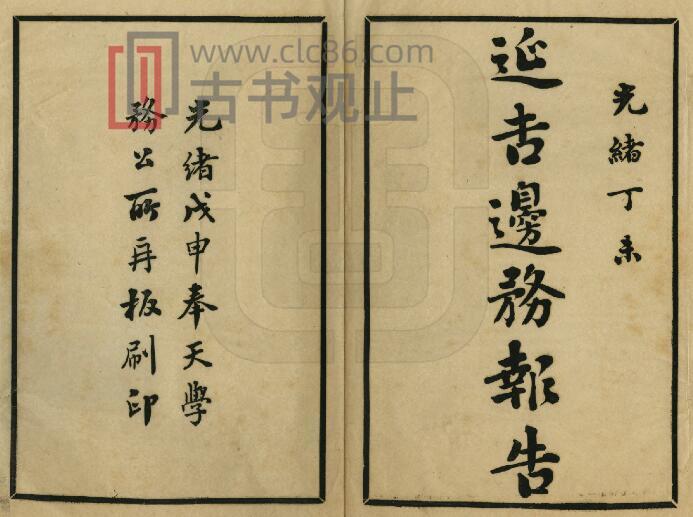 光緒丁未
延吉邊務報告
光緒戊申奉天學
務公所再板刷印
www.clc86.com
古书观止